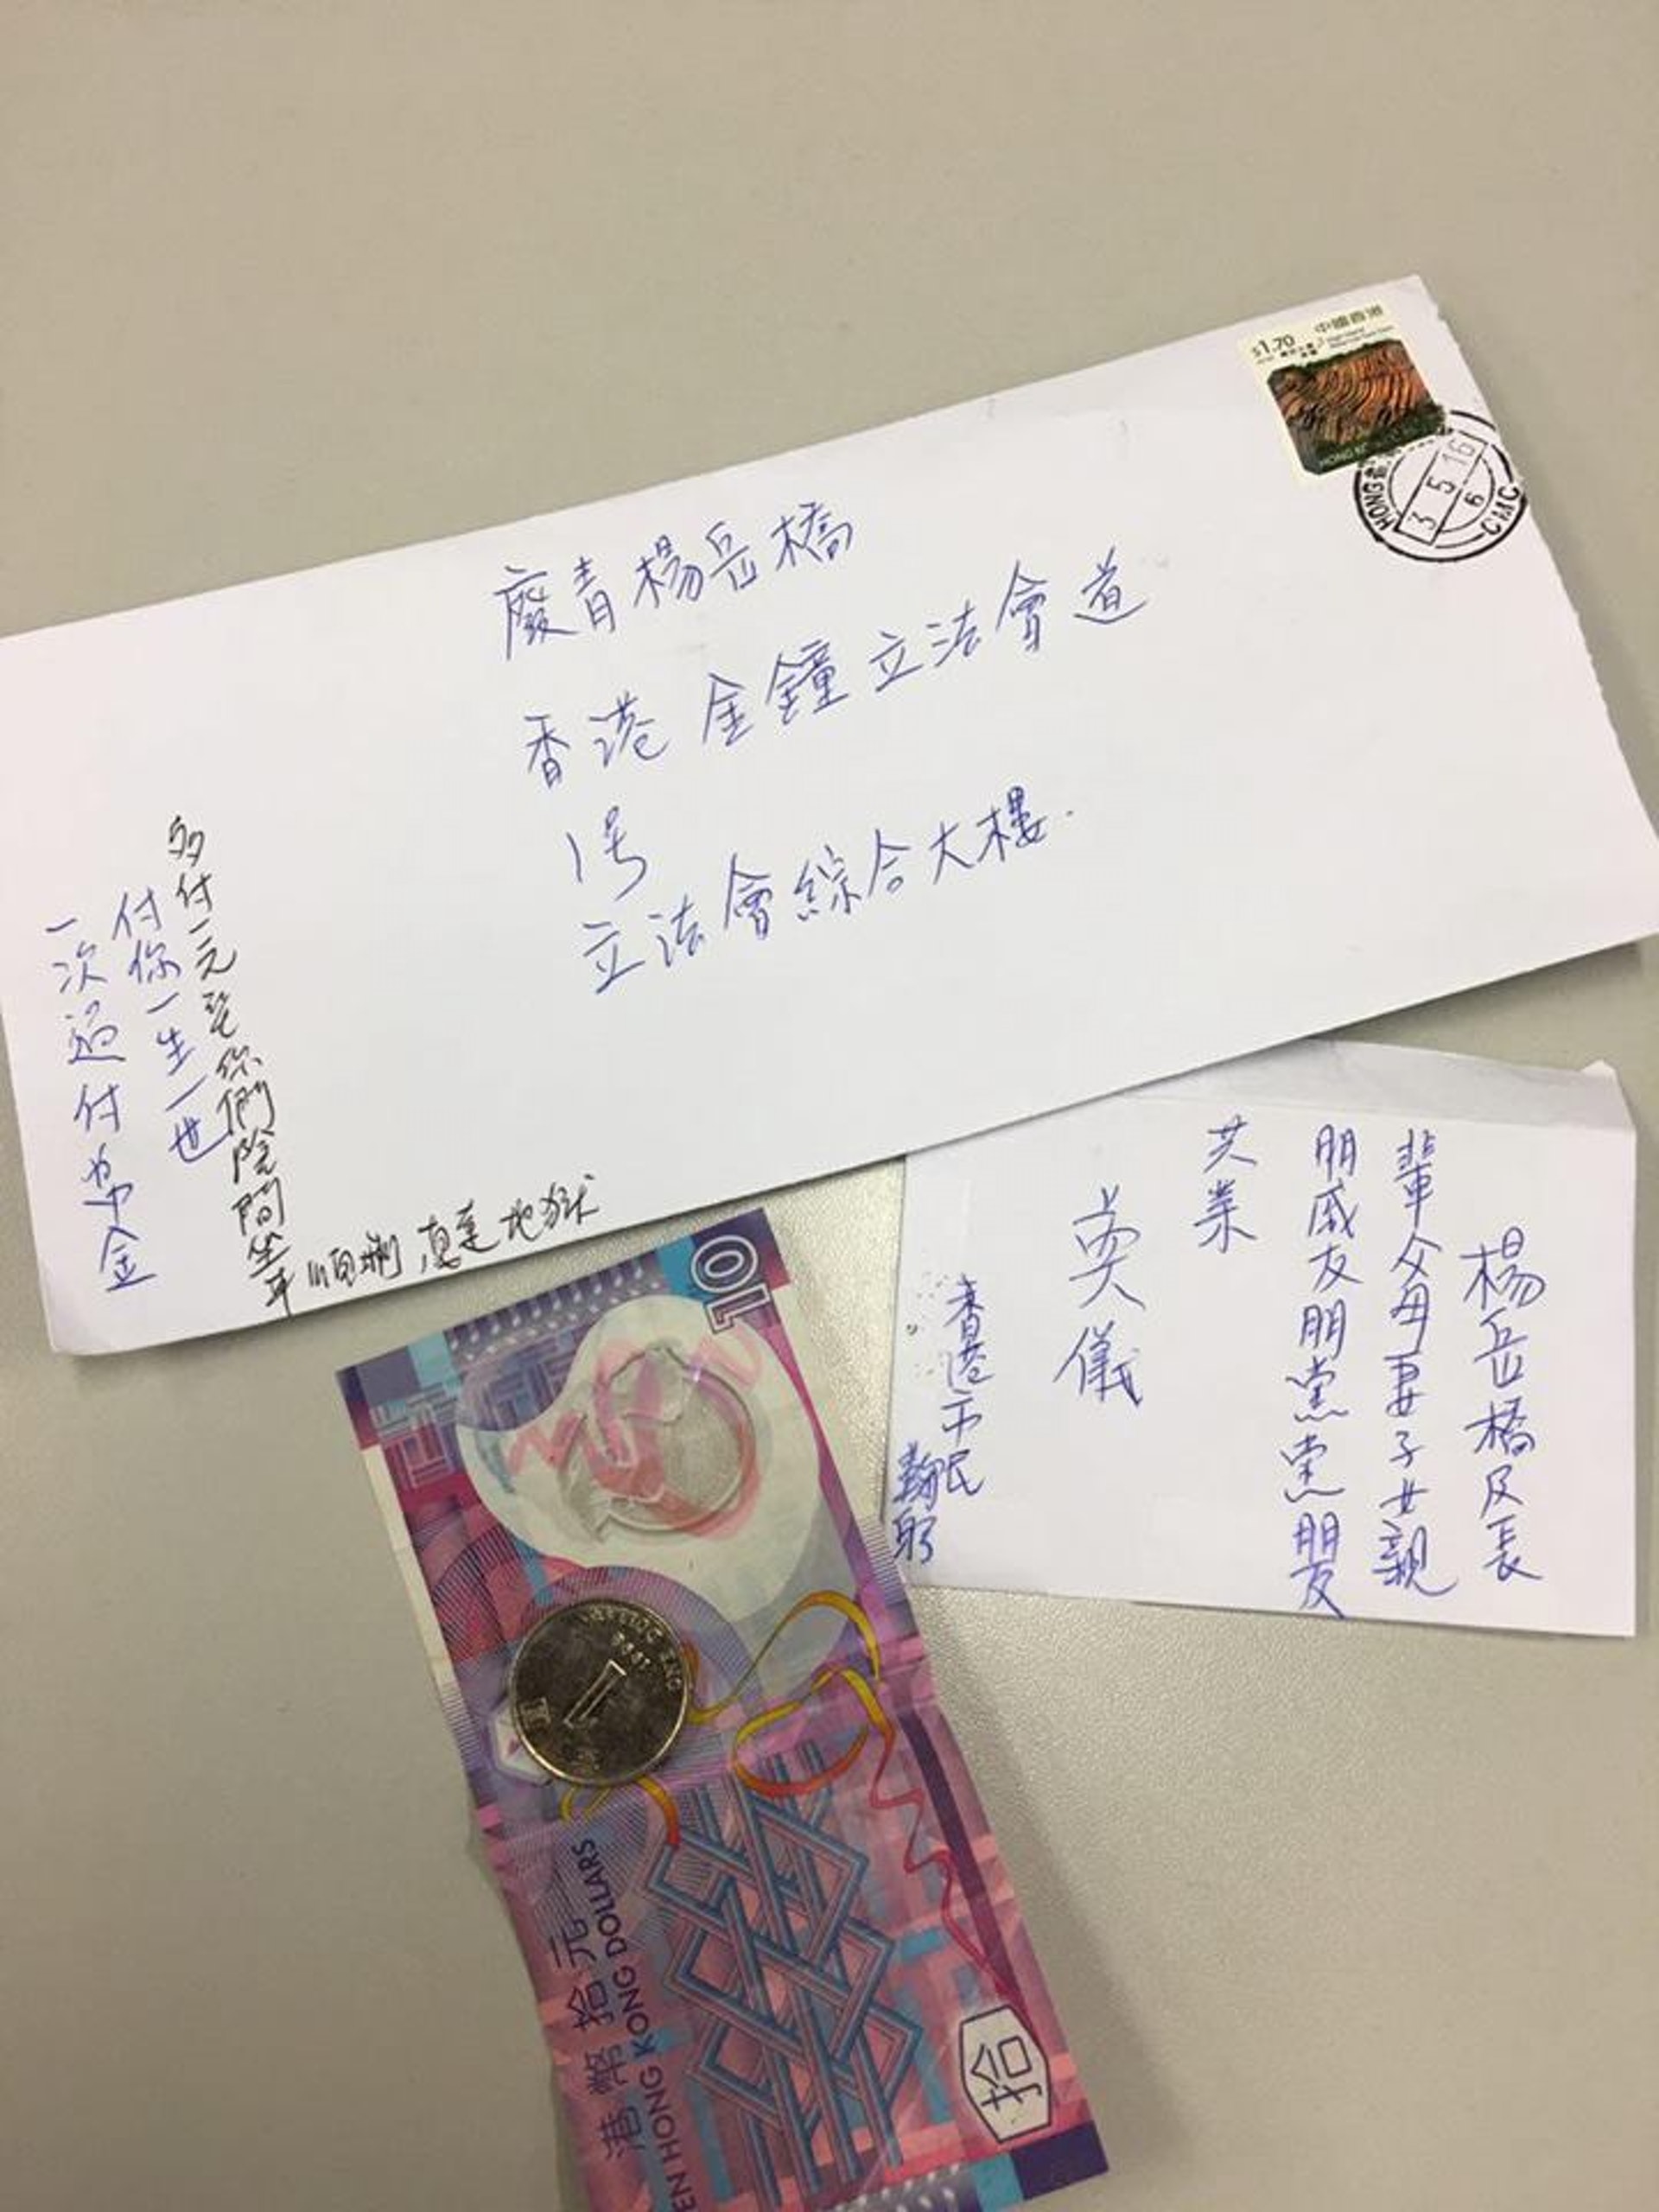 中國香港
$1.70
HONG
3 5 16
6
CMC
廢青楊岳橋
香港金鐘立法會道
1号
立法會綜合大樓
多付一元
你們陰間坐車
順
地獄
付你一生一世
一次過付帛金
楊岳橋及長
輩父母妻子女親
朋戚友朋黨黨朋友
共業
奠儀
香港市民
鞠躬
10
ONE DOLLAR
1
港幣拾元
TEN HONG KONG DOLLARS
拾